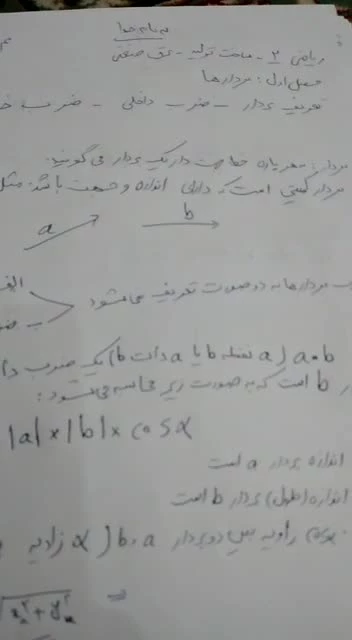 به نام خدا
ریاضی ۲ - ساخت تولید - صنعتی
فصل اول: بردارها
تعریف بردار - ضرب داخلی - ضرب
بردار: هر پاره خط جهت دار یک بردار می گویند.
بردار کمیتی است که دارای اندازه و جهت باشد. مثل
a b
بردارها به دو صورت تعریف می شود
الف
a • b (a نقطه b یا a دات b) یک ضرب
b است که به صورت زیر محاسبه می شود:
|a| × |b| × cos α
اندازه بردار a است
اندازه (طول) بردار b است
زاویه بین دو بردار a، b (α زاویه